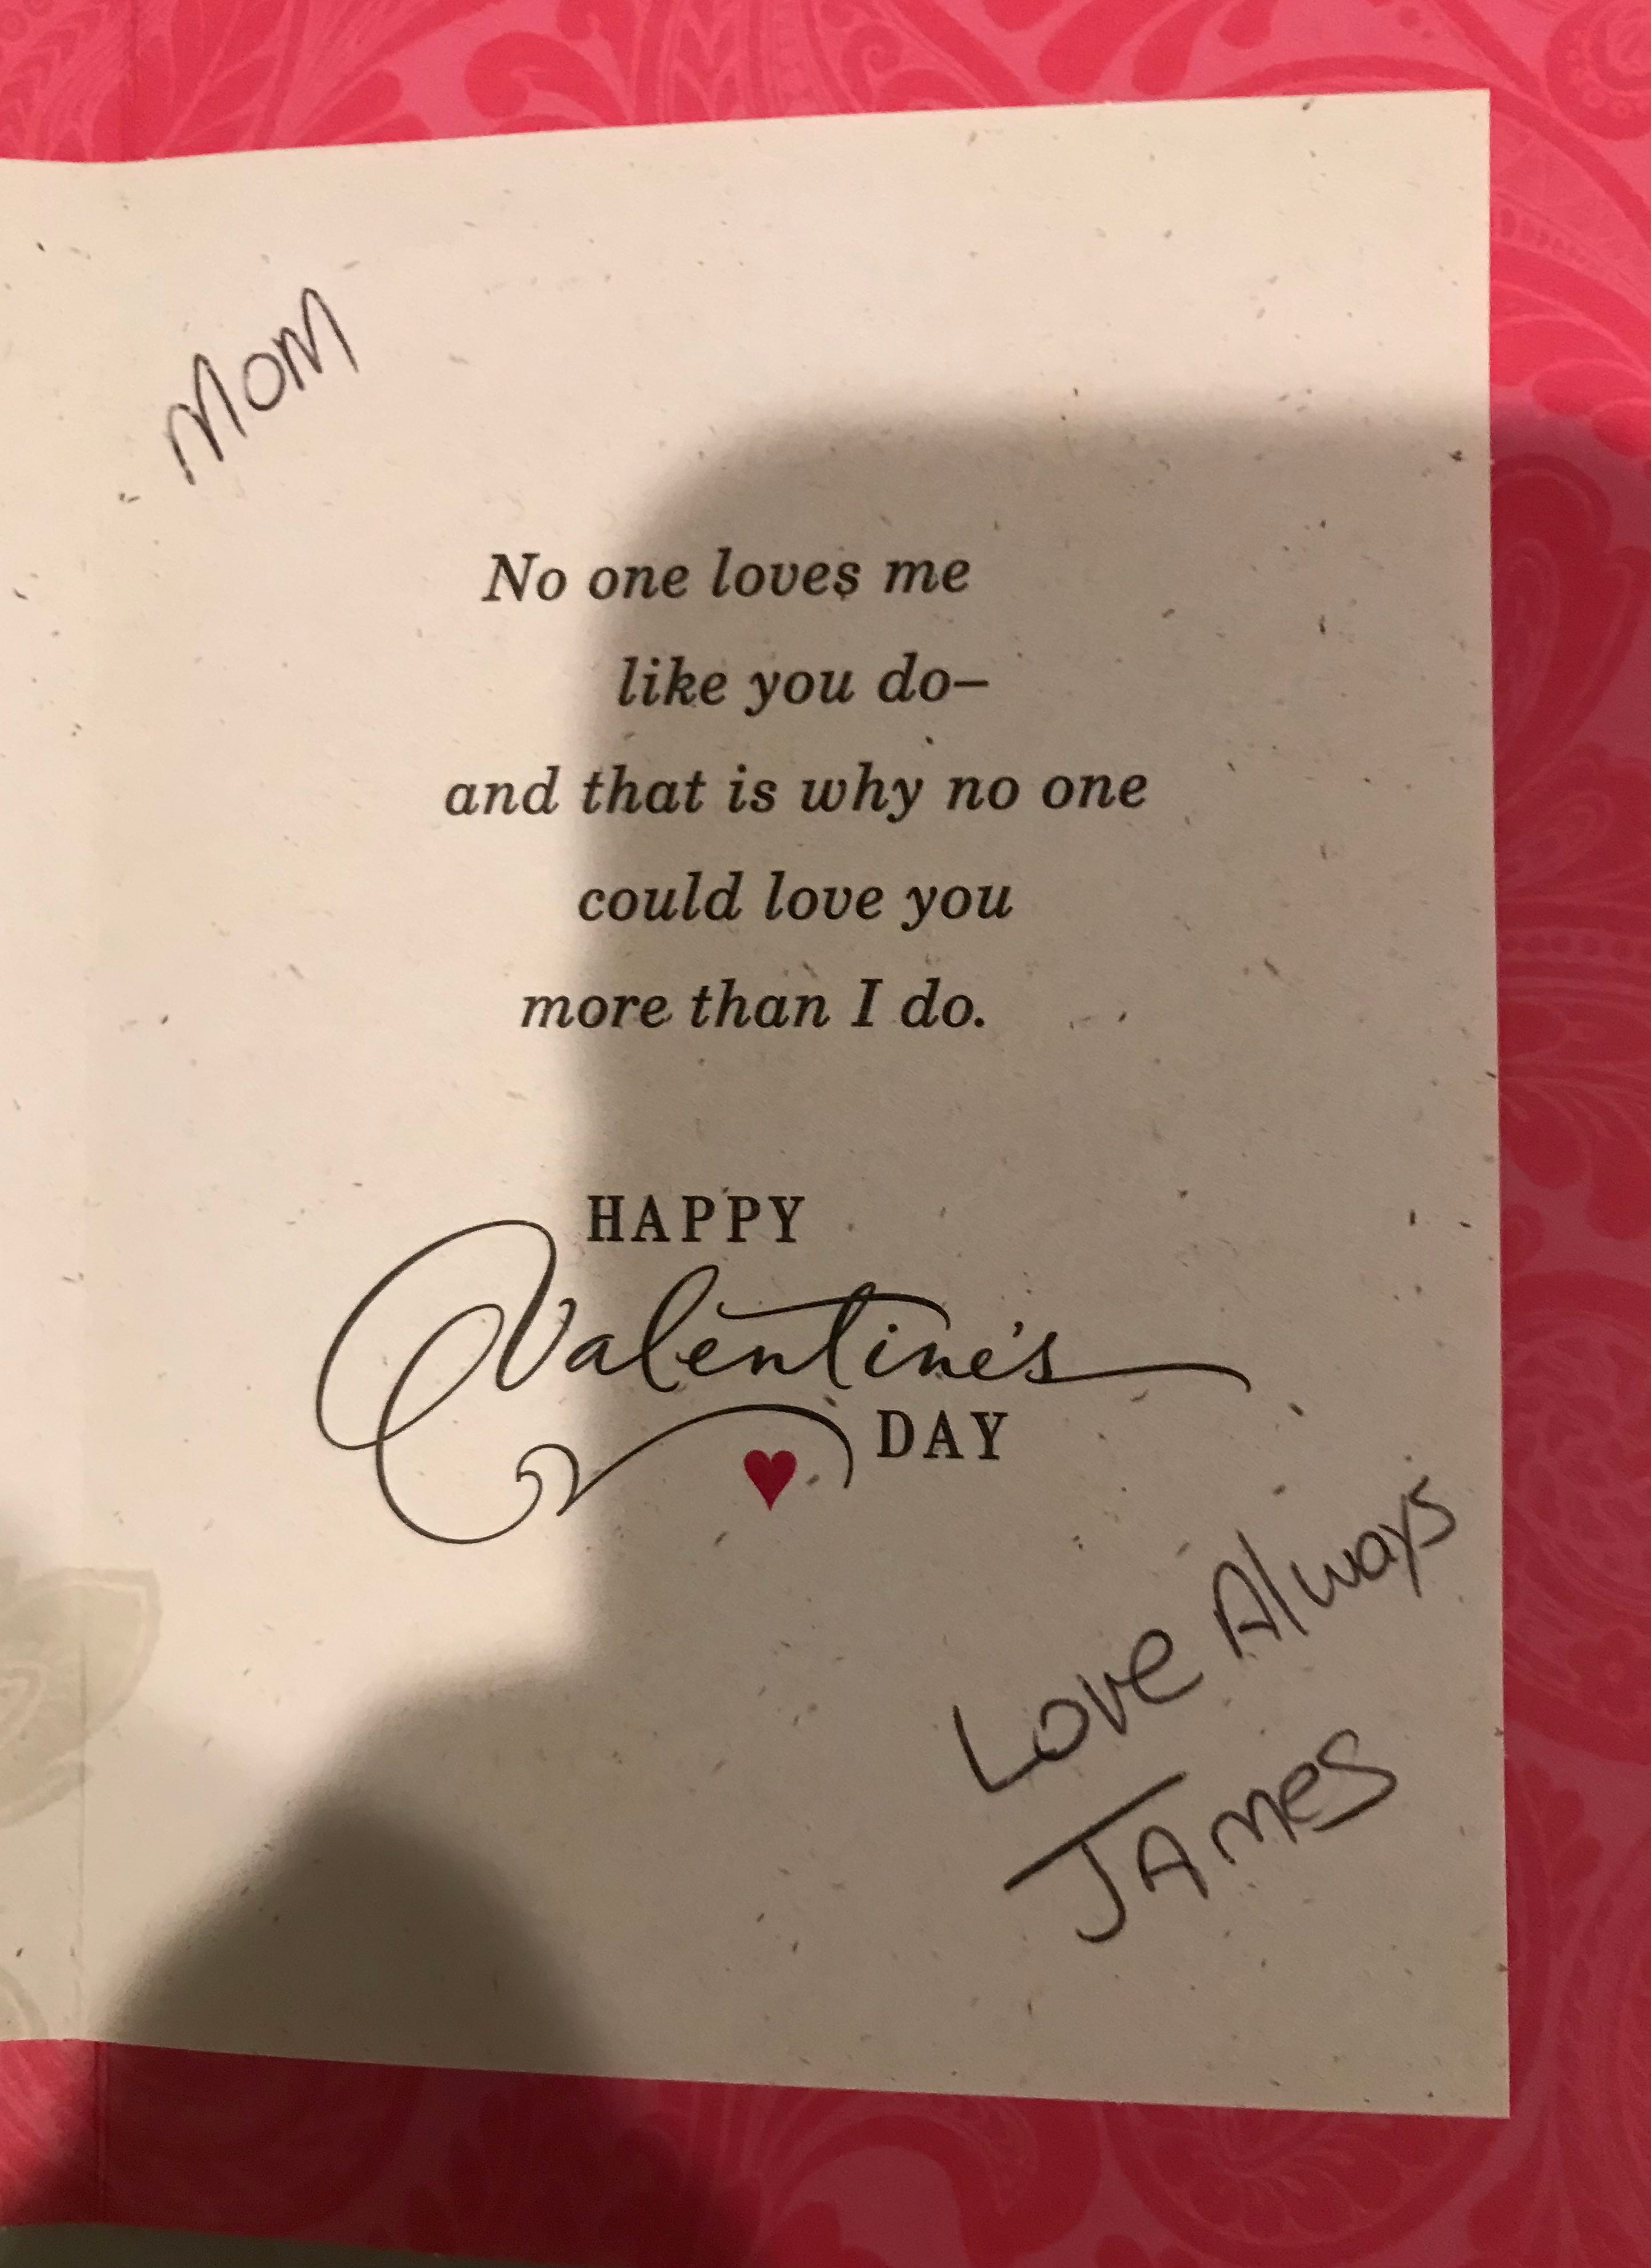 Mom
No one loves me
like you do–
and that is why no one
could love you
more than I do.
HAPPY
Valentine's
DAY
Love Always
JAmes